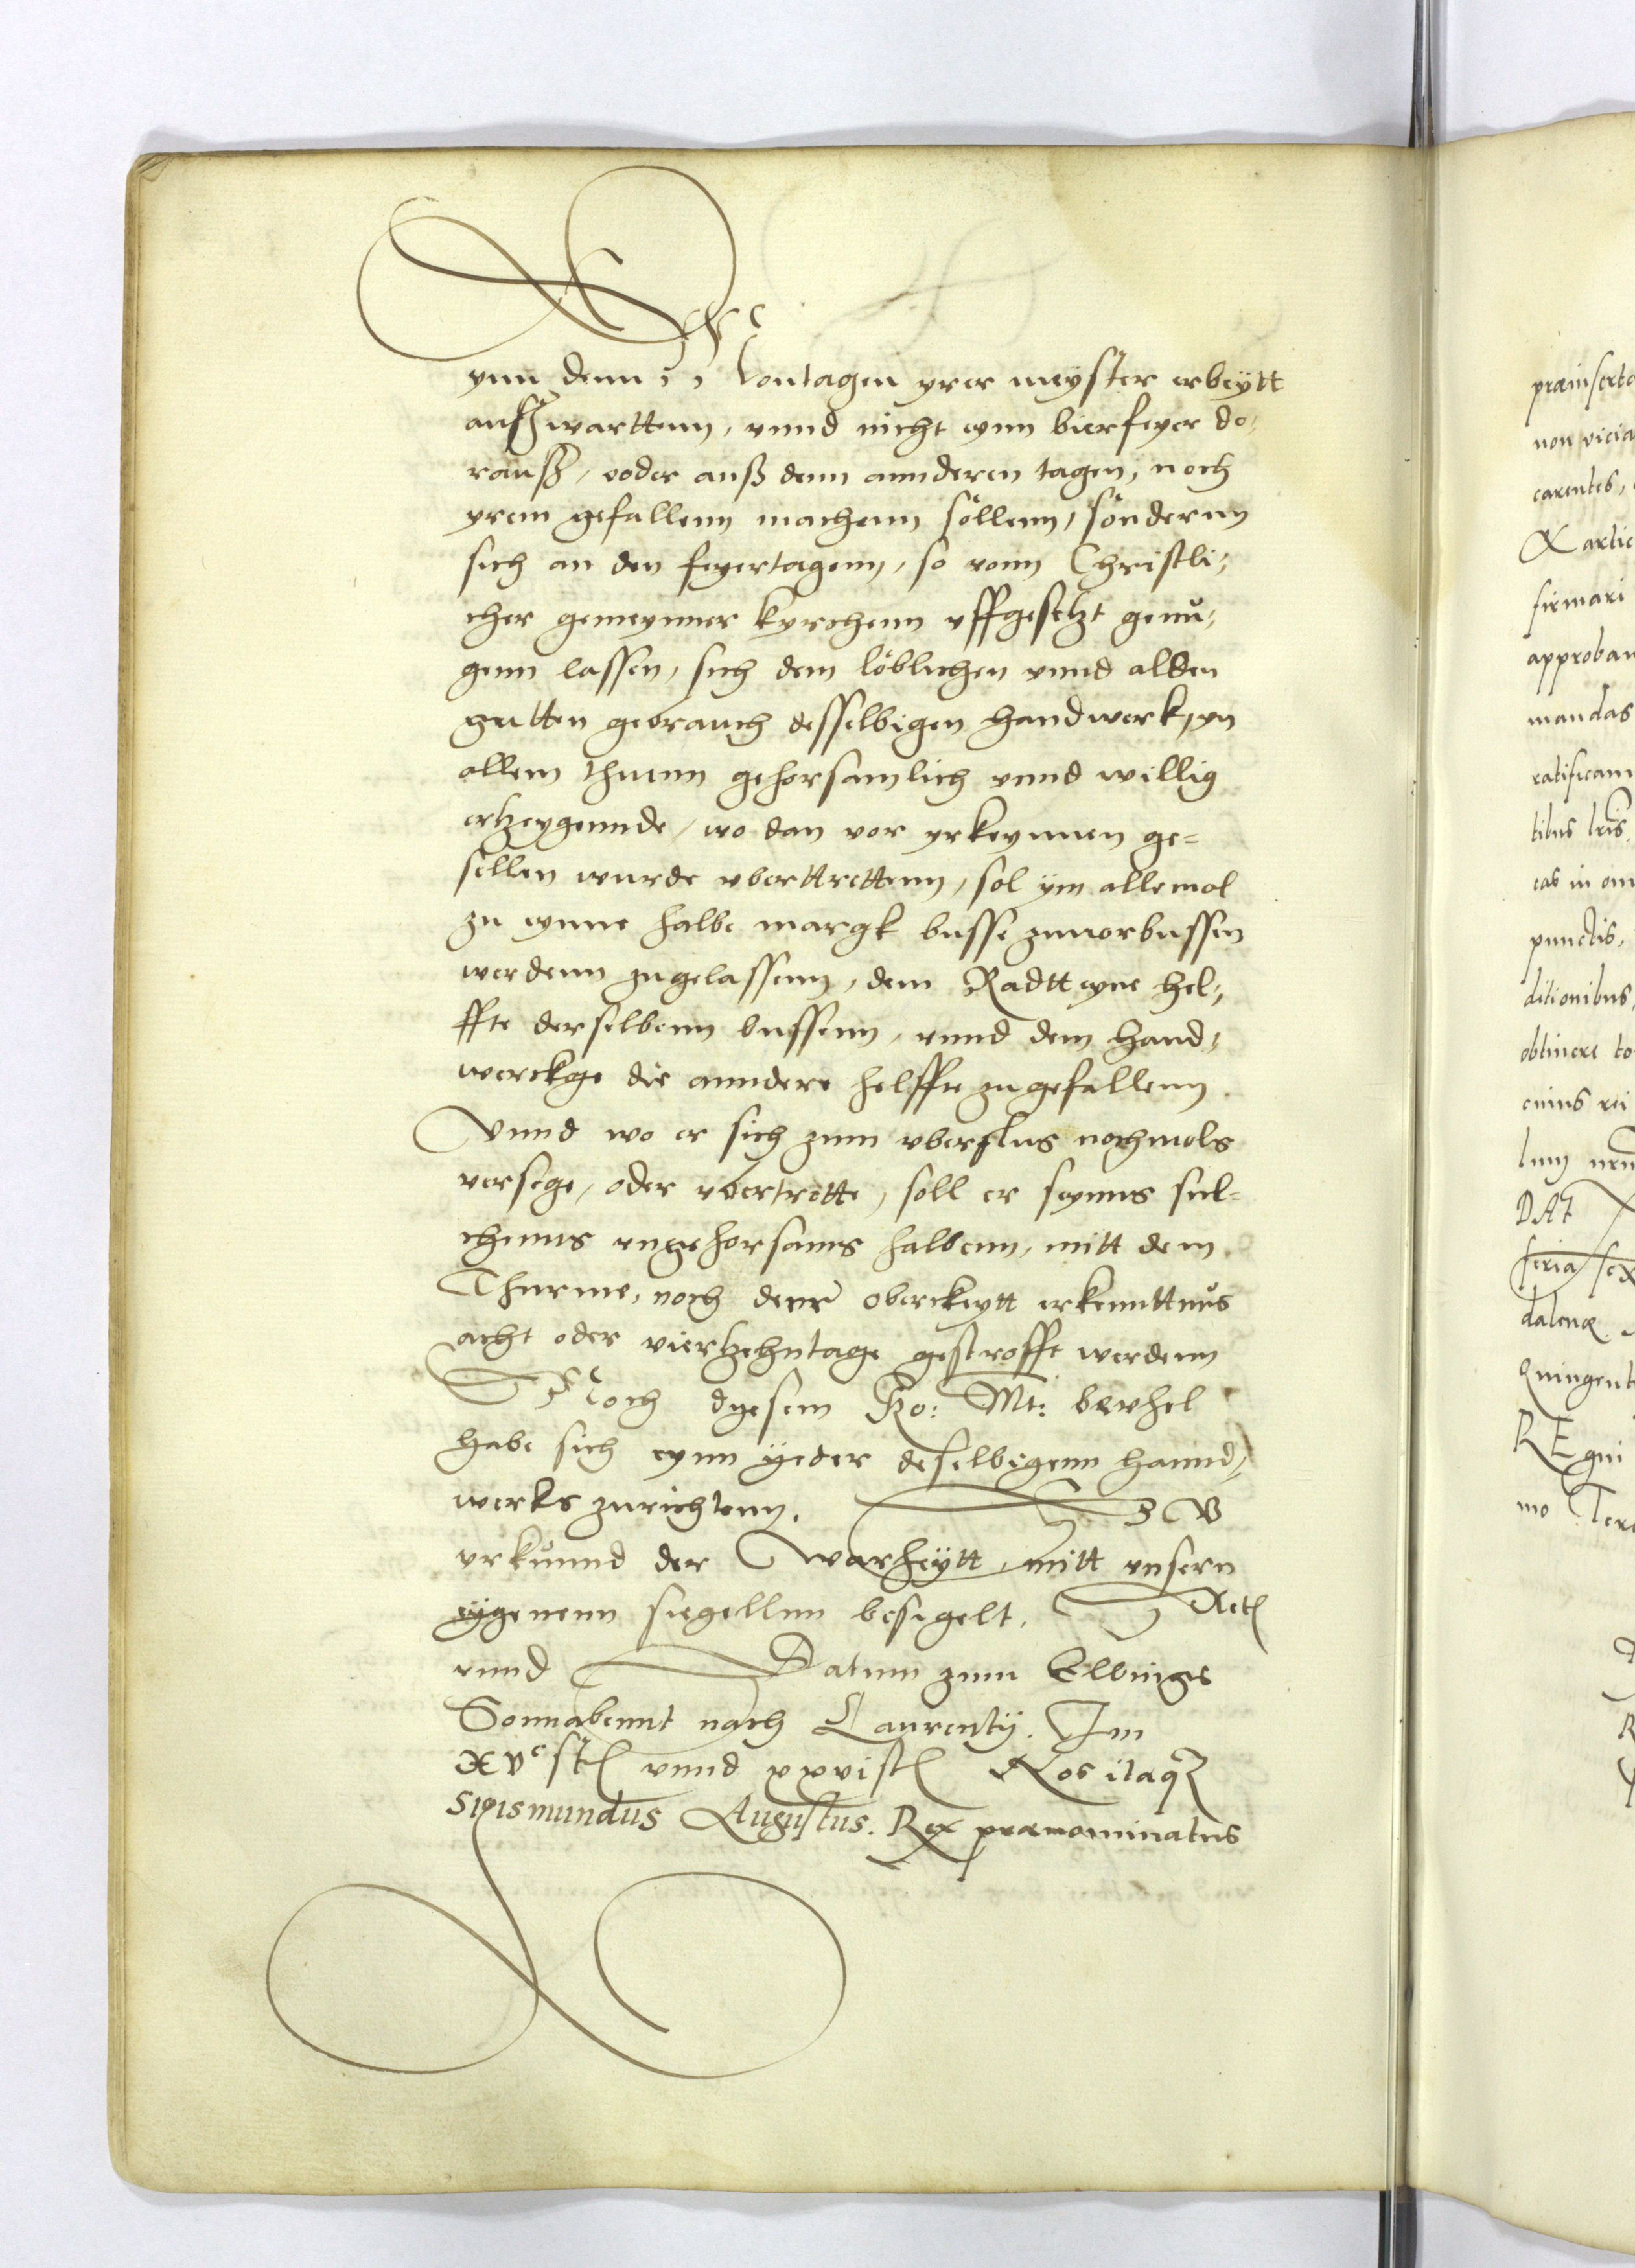 ynn denn Montagen yrer meyster erbeytt
außwarttenn, vnnd nicht eynn bierfeyer do,
rauß, ader auß denn annderen tagen, noch
yrem gefallenn machenn söllenn, söndernn
sich an den feyertagenn, so vonn Christli,
cher gemeynner kyrchenn vffgesetzt genŭ,
genn lassen, sich dem löblichen vnnd alden
gutten gebrauch desselbigen handwerk, yn
allem thuenn gehorsamlich vnnd willig
ertzeygennde, wo dan vor yrkeynnen ge=
sellen wurde vberttrettenn, sol ym allemol
zu eynne halbe margk busse zuuorbussen
werdenn zugelassenn, dem Radtt eyne hel,
ffte derselbenn bussenn, vnnd dem hand,
werckge die anndere helffte zugefallenn.
Vnnd wo er sich zum vberflus nochmols
versege, oder vbertrette, soll er seynns sul=
chenns vngehorsams halbenn, mitt dem
Thurme, noch derr oberckeytt erkennttnŭs
acht oder viertzehntage gestrofft werdenn
Noch dyesem Ko: Mt: bevhel
habe sich eynn yeder deselbigenn hannd,
werks zurichtenn. ZV
vrkŭnnd der Warheytt, mitt vnsern
eygenenn siegellnn besigelt. Act
vnnd Datum zum Elbinge
Sonnabennt nach Laurentij. Im
XVᶜ st vnnd xxvist Nos itaqꝫ
Sigismundus Augustus. Rex prænominatus
præinserto
non vicia
carentes,
artic
firmari
approban
mandas
ratificam
titus lris
eas in om
punctis,
ditionibus,
obtinere
cuius rei
DAT
feria sex
dalenæ.
Quingent
REgni
mo